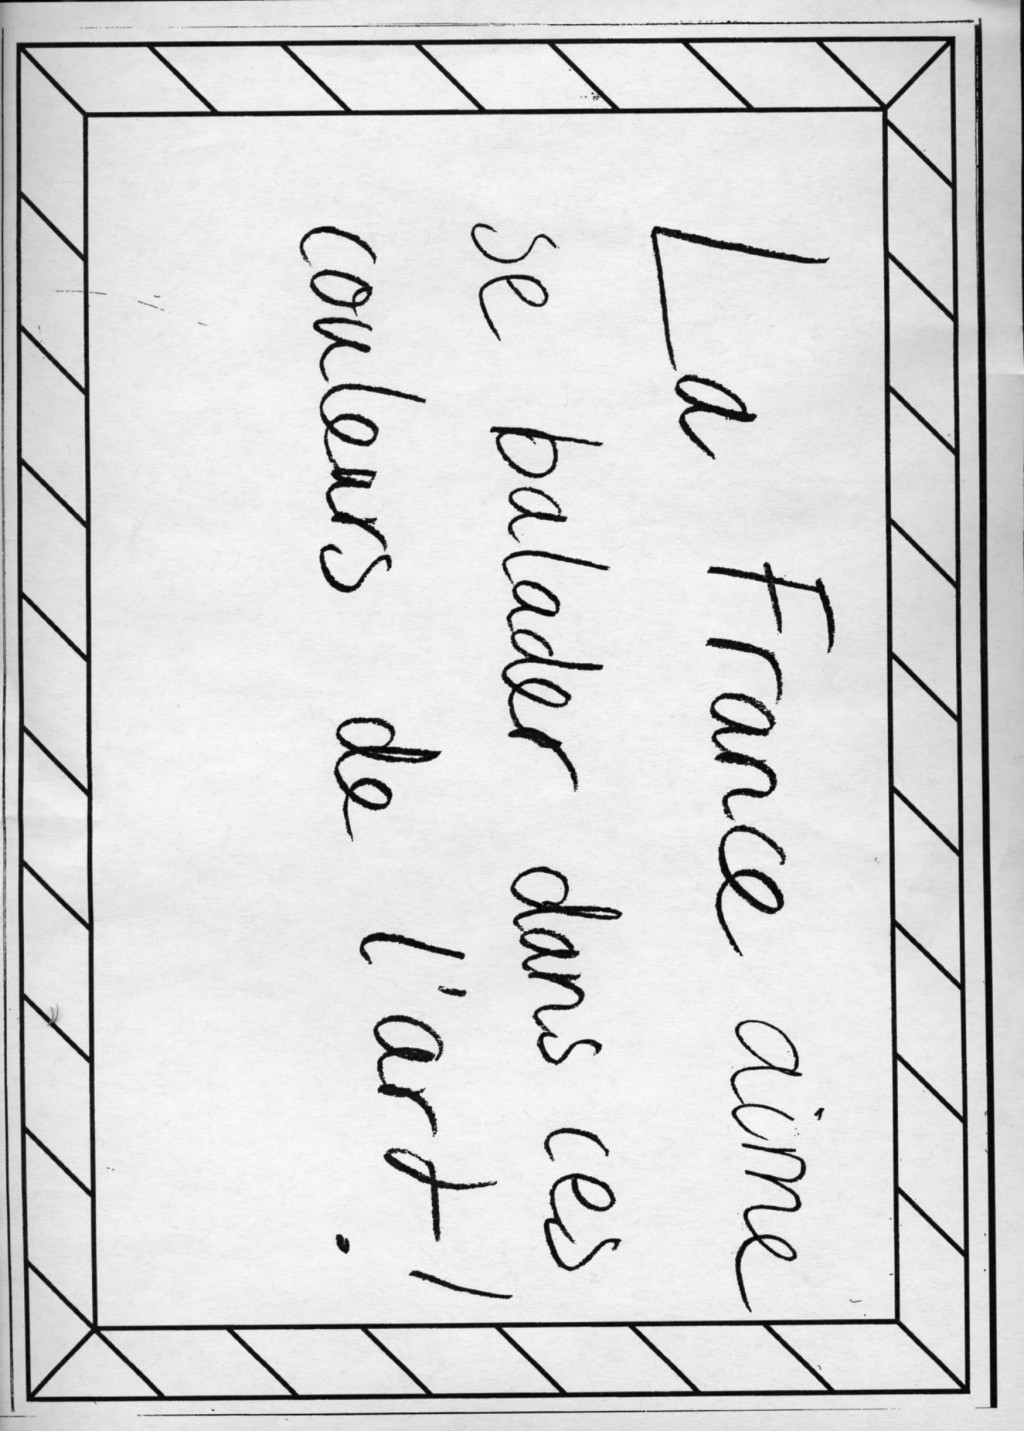 La France aime
se balader dans ces
couleurs de l'art!